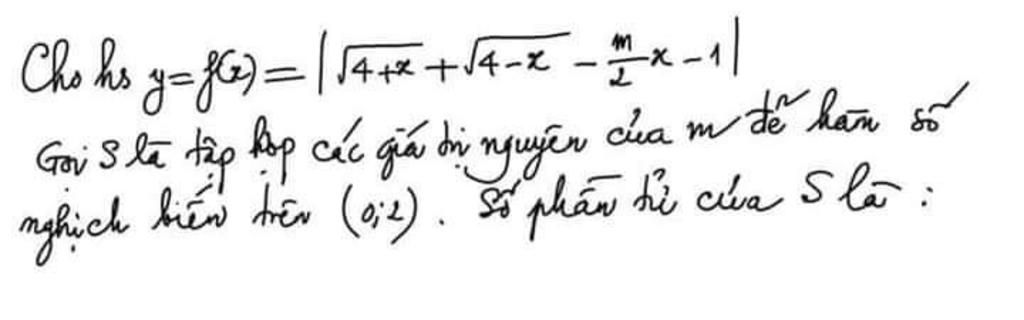 Cho hs y=f(x) = |√4+x + √4-x - m/2 x - 1|
Gọi S là tập hợp các giá trị nguyên của m để hàm số
nghịch biến trên (0;2). Số phần tử của S là :